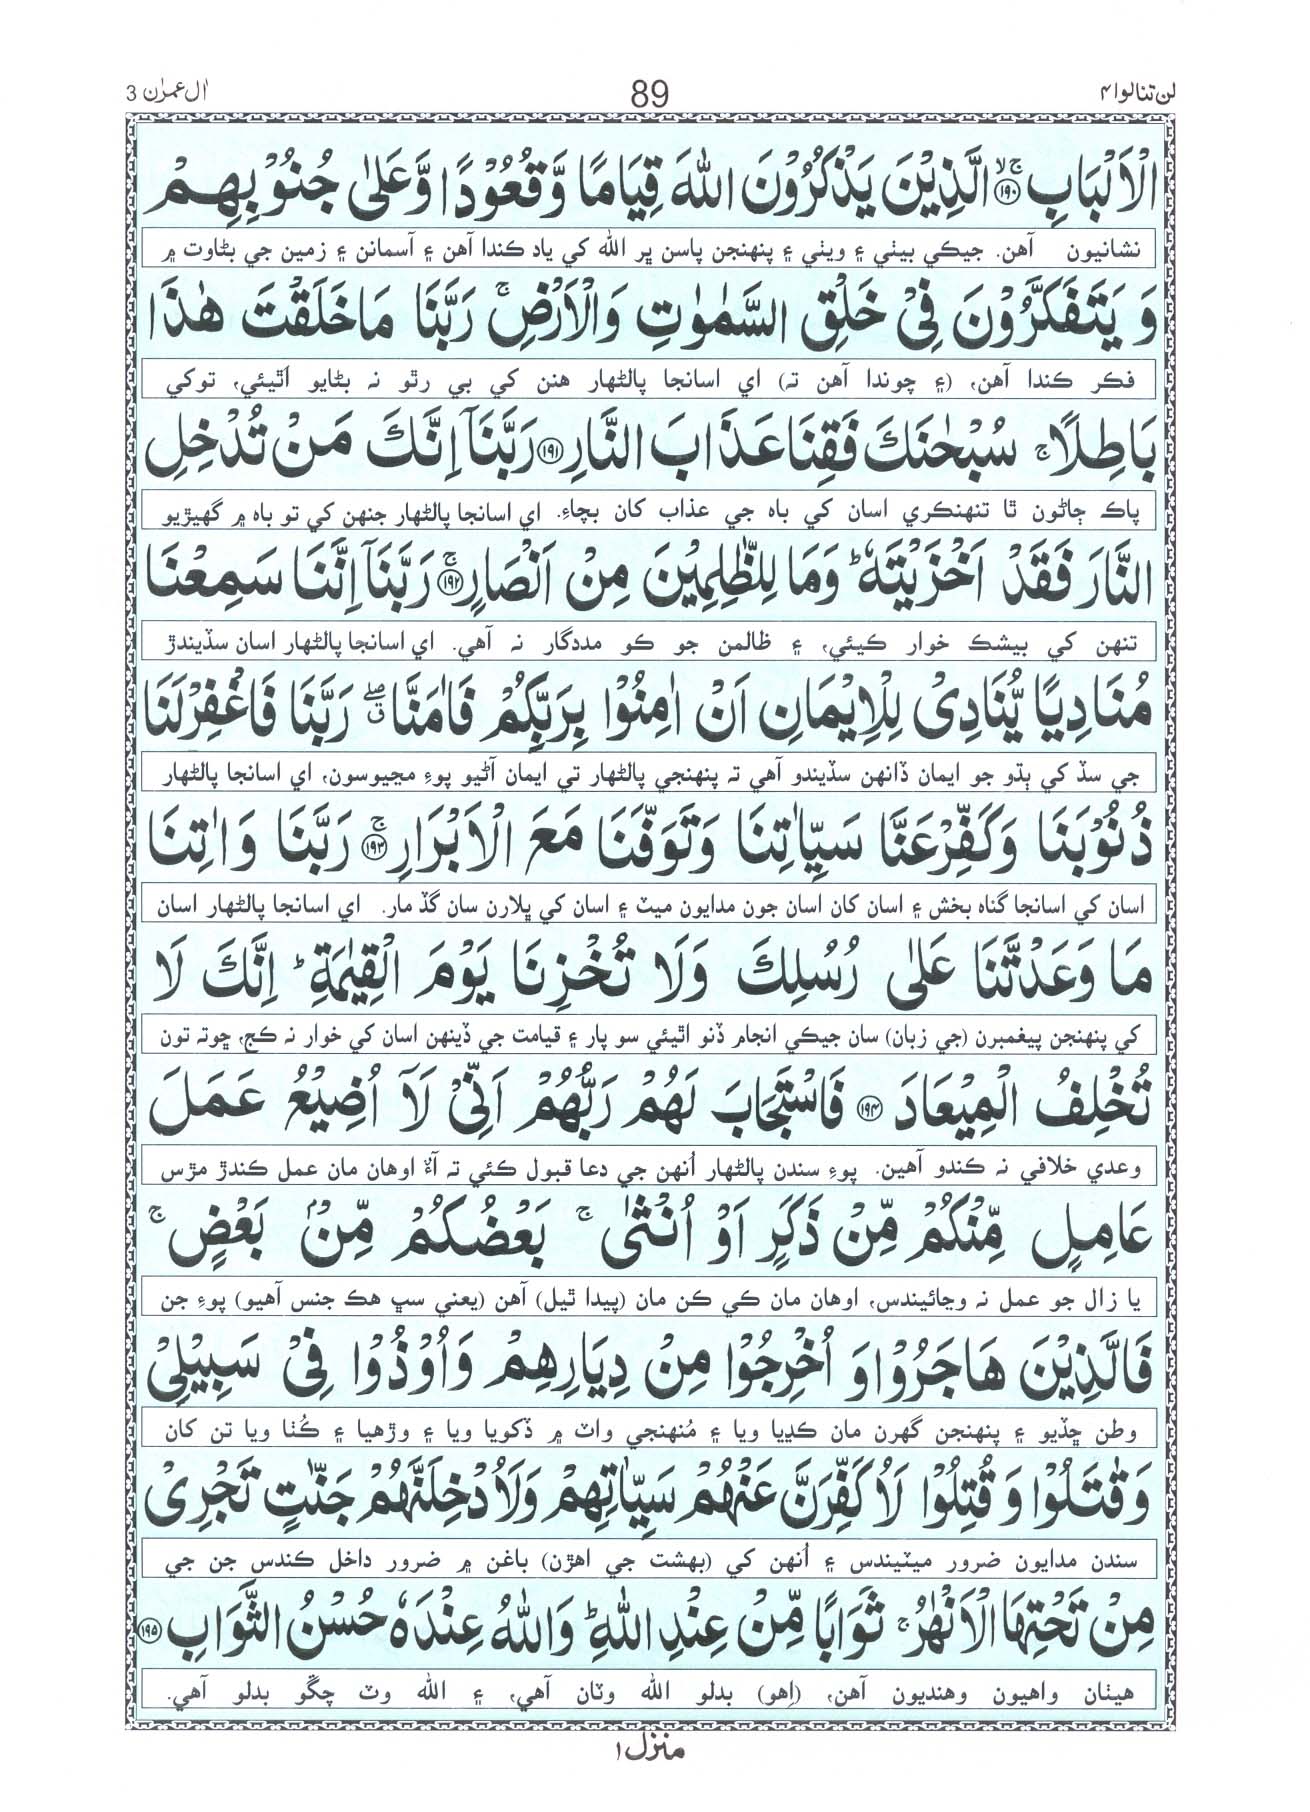 لن تنالوا ۴
89
اٰل عمرٰن 3
الْاَلْبَابِ ﴿۱۹۰﴾ۚۙ الَّذِيْنَ يَذْكُرُوْنَ اللّٰهَ قِيَامًا وَّقُعُوْدًا وَّعَلٰى جُنُوْبِهِمْ
نشانيون آهن. جيڪي بيٺي ۽ ويٺي ۽ پنهنجن پاسن ڀر الله کي ياد ڪندا آهن ۽ آسمانن ۽ زمين جي بڻاوت ۾
وَيَتَفَكَّرُوْنَ فِيْ خَلْقِ السَّمٰوٰتِ وَالْاَرْضِ ۚ رَبَّنَا مَا خَلَقْتَ هٰذَا
فڪر ڪندا آهن، (۽ چوندا آهن تہ) اي اسانجا پالڻهار هنن کي بي رٿو نہ بڻايو اٿيئي، توکي
بَاطِلًا ۚ سُبْحٰنَكَ فَقِنَا عَذَابَ النَّارِ ﴿۱۹۱﴾ رَبَّنَآ اِنَّكَ مَنْ تُدْخِلِ
پاڪ ڄاڻون ٿا تنهنڪري اسان کي باه جي عذاب کان بچاءِ. اي اسانجا پالڻهار جنهن کي تو باه ۾ گهيڙيو
النَّارَ فَقَدْ اَخْزَيْتَهٗ ؕ وَمَا لِلظّٰلِمِيْنَ مِنْ اَنْصَارٍ ﴿۱۹۲﴾ۚ رَبَّنَآ اِنَّنَا سَمِعْنَا
تنهن کي بيشڪ خوار ڪيئي، ۽ ظالمن جو ڪو مددگار نہ آهي. اي اسانجا پالڻهار اسان سڏيندڙ
مُنَادِيًا يُّنَادِيْ لِلْاِيْمَانِ اَنْ اٰمِنُوْا بِرَبِّكُمْ فَاٰمَنَّا ۖۗ رَبَّنَا فَاغْفِرْ لَنَا
جي سڏ کي ٻڌو جو ايمان ڏانهن سڏيندو آهي تہ پنهنجي پالڻهار تي ايمان آڻيو پوءِ مڃيوسون، اي اسانجا پالڻهار
ذُنُوْبَنَا وَكَفِّرْ عَنَّا سَيِّاٰتِنَا وَتَوَفَّنَا مَعَ الْاَبْرَارِ ﴿۱۹۳﴾ۚ رَبَّنَا وَاٰتِنَا
اسان کي اسانجا گناه بخش ۽ اسان کان اسان جون مدايون ميٽ ۽ اسان کي ڀلارن سان گڏ مار. اي اسانجا پالڻهار اسان
مَا وَعَدْتَّنَا عَلٰى رُسُلِكَ وَلَا تُخْزِنَا يَوْمَ الْقِيٰمَةِ ؕ اِنَّكَ لَا
کي پنهنجن پيغمبرن (جي زبان) سان جيڪي انجام ڏنو اٿيئي سو پار ۽ قيامت جي ڏينهن اسان کي خوار نہ ڪج، ڇوتہ تون
تُخْلِفُ الْمِيْعَادَ ﴿۱۹۴﴾ فَاسْتَجَابَ لَهُمْ رَبُّهُمْ اَنِّيْ لَآ اُضِيْعُ عَمَلَ
وعدي خلافي نہ ڪندو آهين. پوءِ سندن پالڻهار اُنهن جي دعا قبول ڪئي تہ آءٌ اوهان مان عمل ڪندڙ مڙس
عَامِلٍ مِّنْكُمْ مِّنْ ذَكَرٍ اَوْ اُنْثٰى ۚ بَعْضُكُمْ مِّنْۢ بَعْضٍ ۚ
يا زال جو عمل نہ وڃائيندس، اوهان مان ڪي ڪن مان (پيدا ٿيل) آهن (يعني سڀ هڪ جنس آهيو) پوءِ جن
فَالَّذِيْنَ هَاجَرُوْا وَاُخْرِجُوْا مِنْ دِيَارِهِمْ وَاُوْذُوْا فِيْ سَبِيْلِيْ
وطن ڇڏيو ۽ پنهنجن گهرن مان ڪڍيا ويا ۽ مُنهنجي واٽ ۾ ڏکويا ويا ۽ وڙهيا ۽ ڪُٺا ويا تن کان
وَقٰتَلُوْا وَقُتِلُوْا لَاُكَفِّرَنَّ عَنْهُمْ سَيِّاٰتِهِمْ وَلَاُدْخِلَنَّهُمْ جَنّٰتٍ تَجْرِيْ
سندن مدايون ضرور ميٽيندس ۽ اُنهن کي (بهشت جي اهڙن) باغن ۾ ضرور داخل ڪندس جن جي
مِنْ تَحْتِهَا الْاَنْهٰرُ ۚ ثَوَابًا مِّنْ عِنْدِ اللّٰهِ ؕ وَاللّٰهُ عِنْدَهٗ حُسْنُ الثَّوَابِ ﴿۱۹۵﴾
هيٺان واهيون وهنديون آهن، (اِهو) بدلو الله وٽان آهي، ۽ الله وٽ چڱو بدلو آهي.
منزل ۱